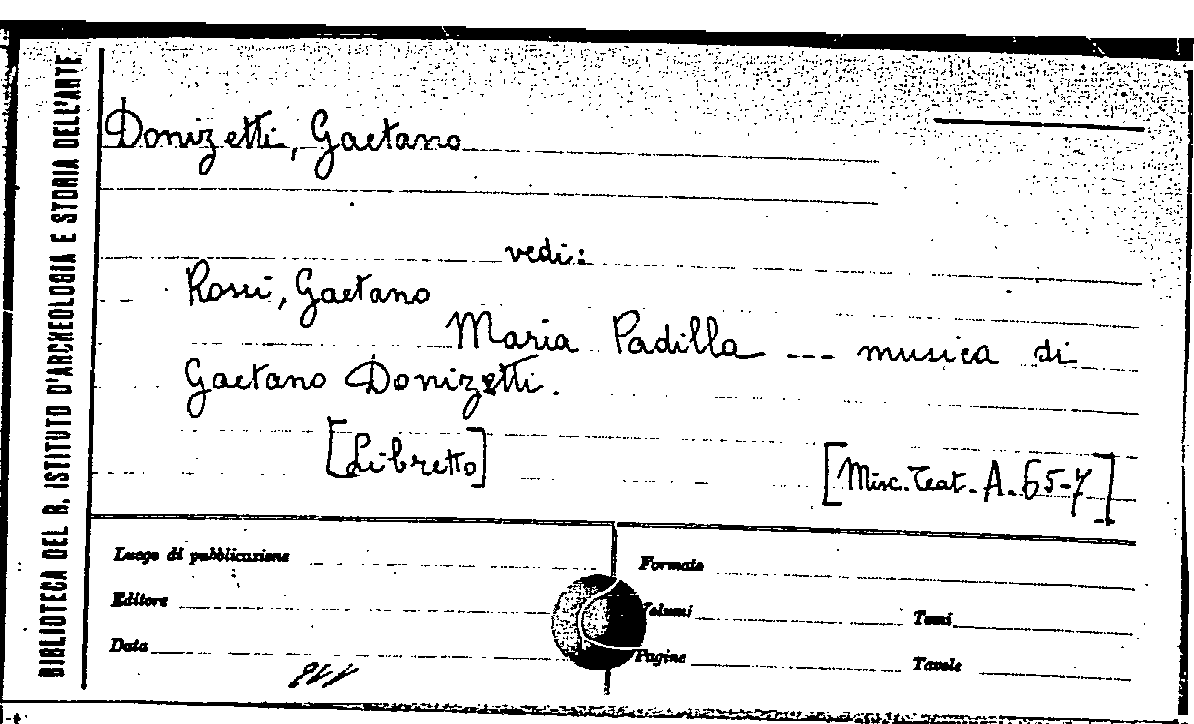 BIBLIOTECA DEL R. ISTITUTO D'ARCHEOLOGIA E STORIA DELL'ARTE
Donizetti, Gaetano
vedi:
Rossi, Gaetano
Maria Padilla --- musica di
Gaetano Donizetti.
[Libretto]
[Misc. Teat. A. 65-7]
Luogo di pubblicazione
Formato
Editore
Volumi
Tomi
Data
Pagine
Tavole